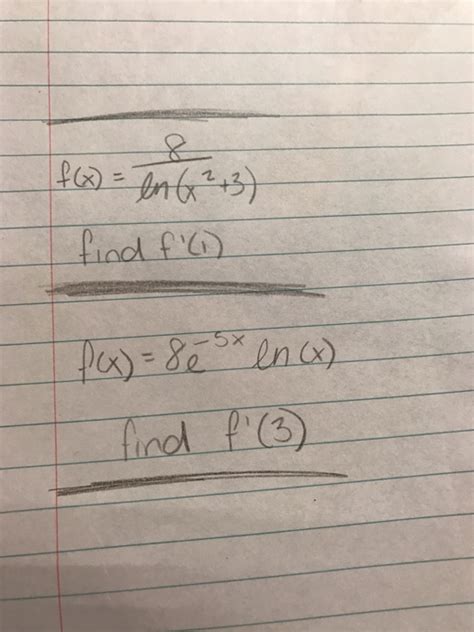 f(x) = 8/ln(x²+3)
find f'(1)
f(x) = 8e⁻⁵ˣ ln(x)
find f'(3)